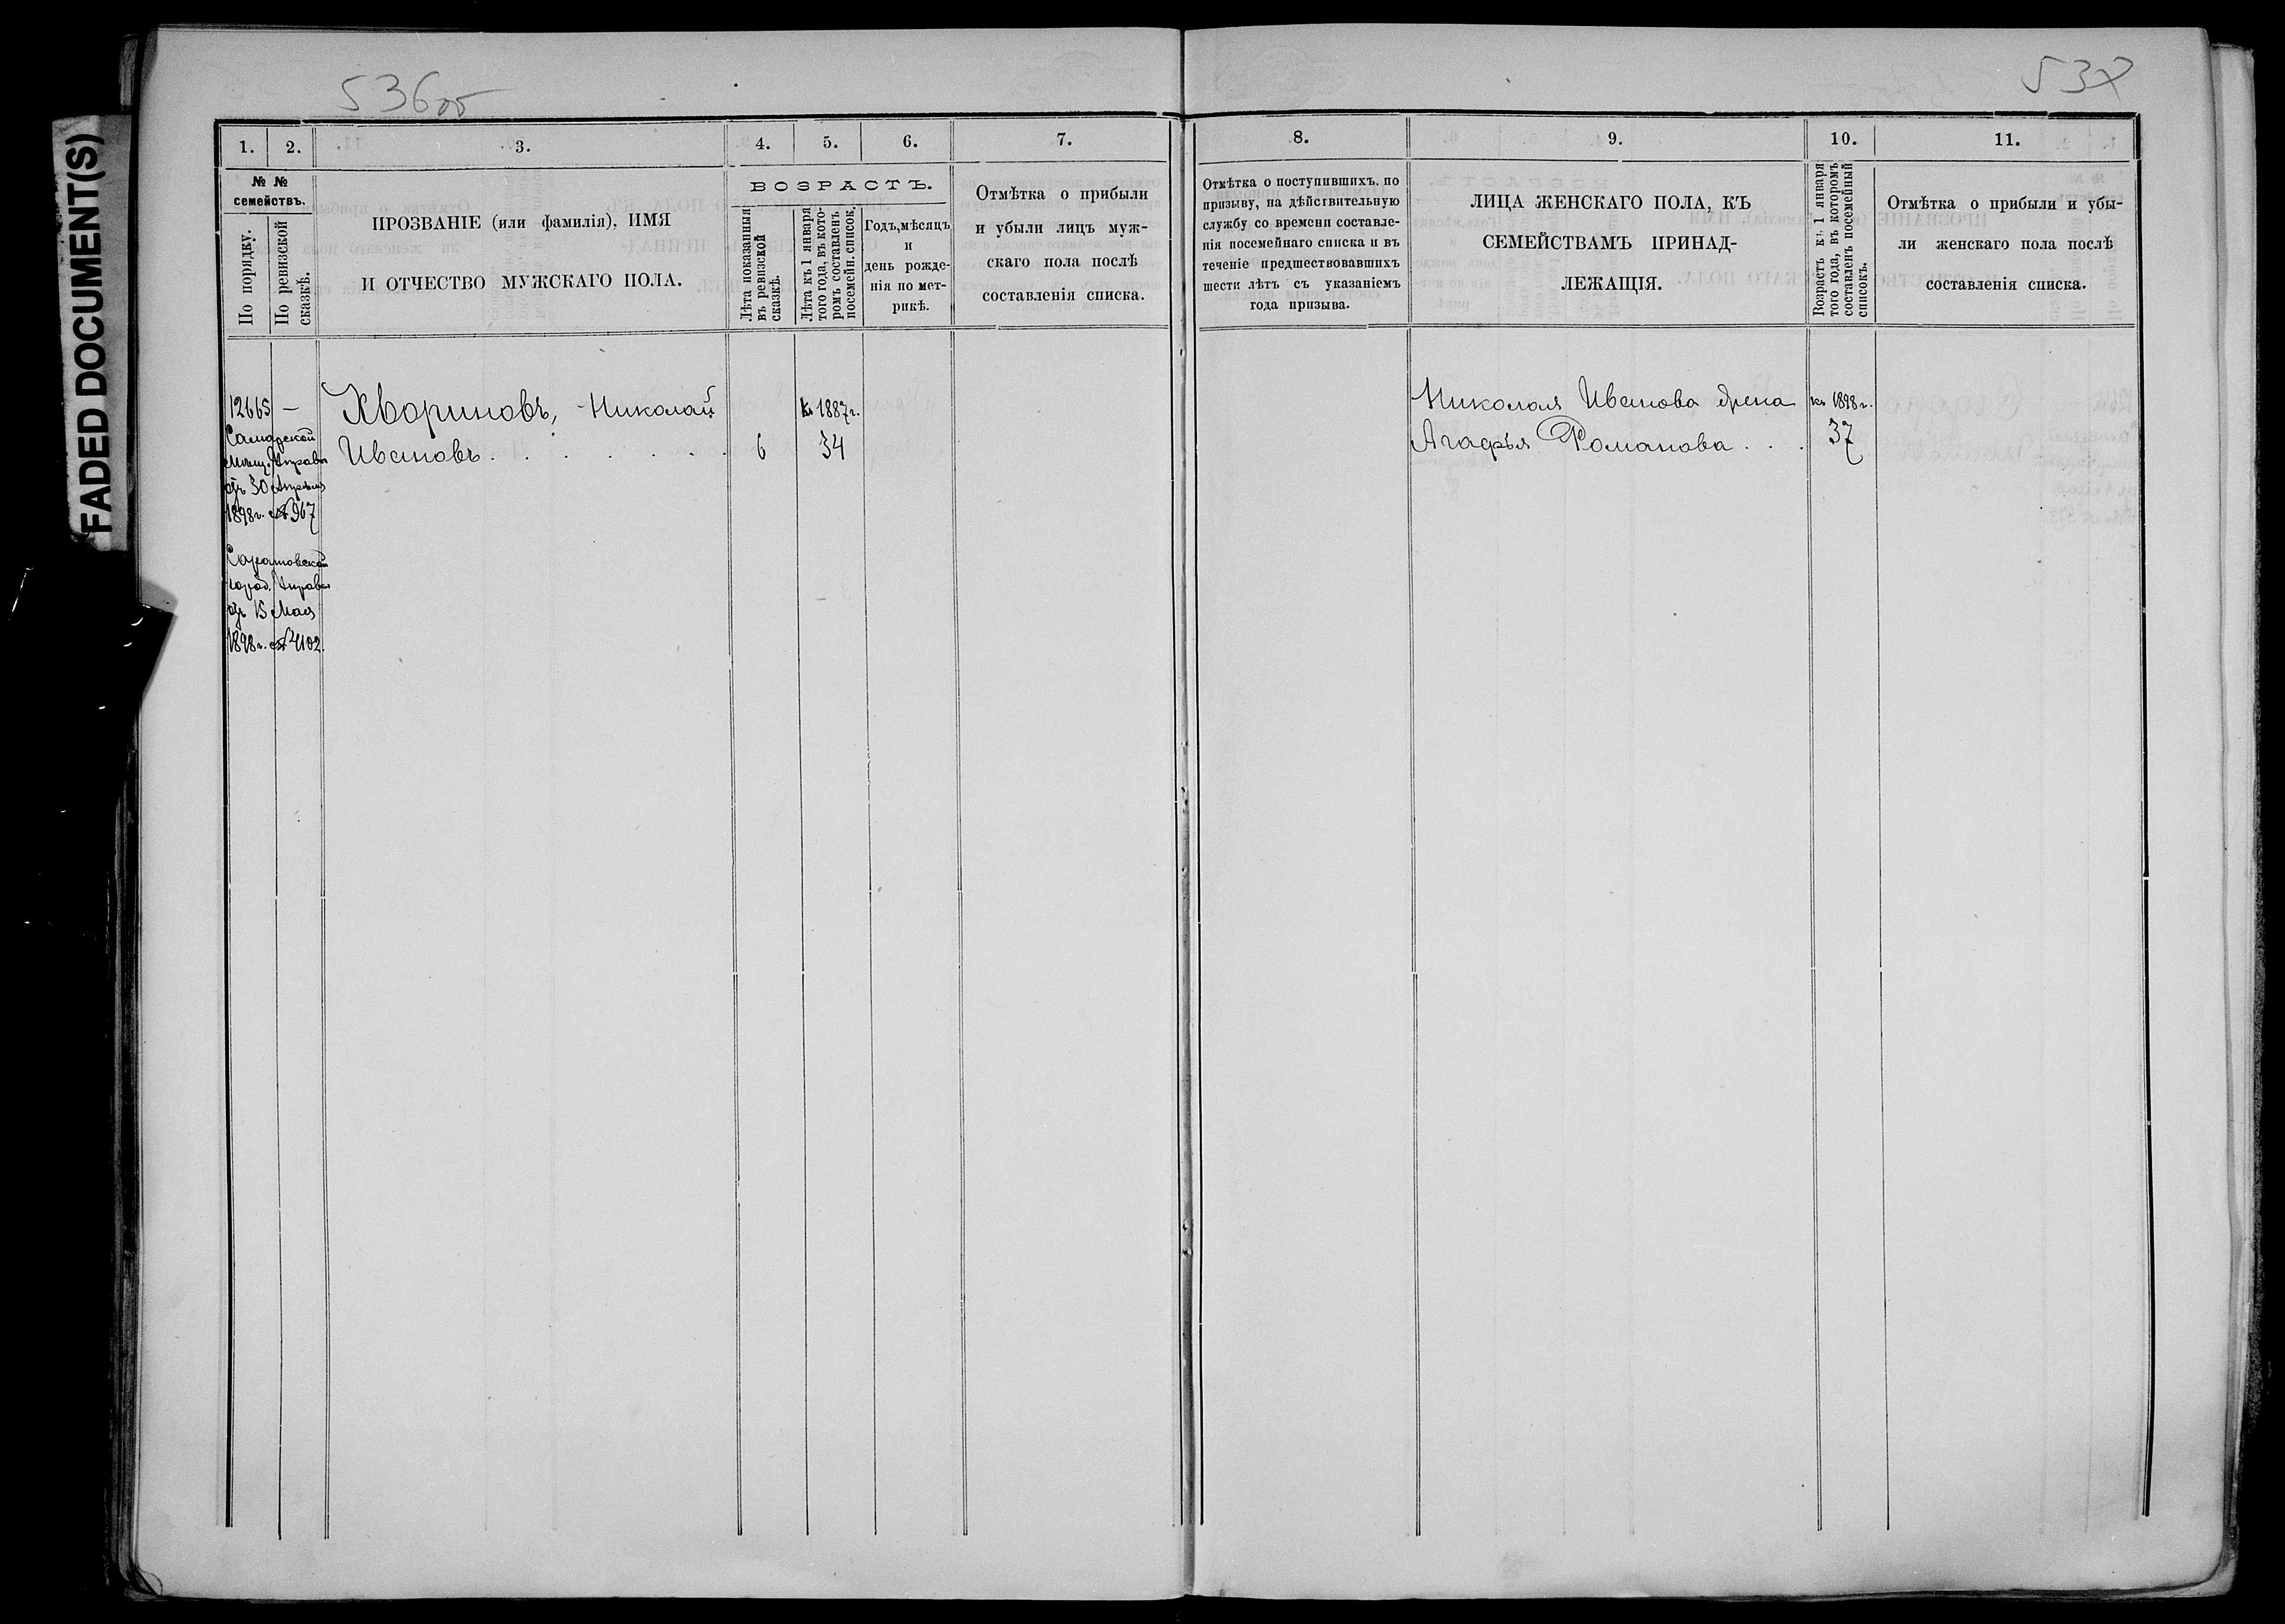 FADED DOCUMENT(S)
536об
537
1.
2.
3.
4.
5.
6.
7.
8.
9.
10.
11.
№ №
семействъ.
По порядку.
По ревизской
сказкѣ.
ПРОЗВАНІЕ (или фамилія), ИМЯ
И ОТЧЕСТВО МУЖСКАГО ПОЛА.
ВОЗРАСТЪ.
Лѣта показанныя
въ ревизской
сказкѣ.
Лѣта къ 1 января
того года, въ кото-
ромъ составленъ
посемейн. список.
Годъ, мѣсяцъ
и
день рожде-
нія по мет-
рикѣ.
Отмѣтка о прибыли
и убыли лицъ муж-
скаго пола послѣ
составленія списка.
Отмѣтка о поступившихъ. по
призыву, на дѣйствительную
службу со времени составле-
нія посемейнаго списка и въ
теченіе предшествовавшихъ
шести лѣтъ съ указаніемъ
года призыва.
ЛИЦА ЖЕНСКАГО ПОЛА, КЪ
СЕМЕЙСТВАМЪ ПРИНАД-
ЛЕЖАЩІЯ.
Возрастъ къ 1 января
того года, въ которомъ
составленъ посемейный
списокъ.
Отмѣтка о прибыли и убы-
ли женскаго пола послѣ
составленія списка.
12665 —
Самарской
Мѣщ. Управы
отъ 30 Апрѣля
1898 г. № 967
Саратовской
Город. Управы
отъ 15 Мая
1898 г. № 4102.
Хвориновъ, Николай
Ивановъ . . . . . . .
6
къ 1887 г.
34
Николая Иванова жена
Агафья Романова . . .
къ 1898 г.
37